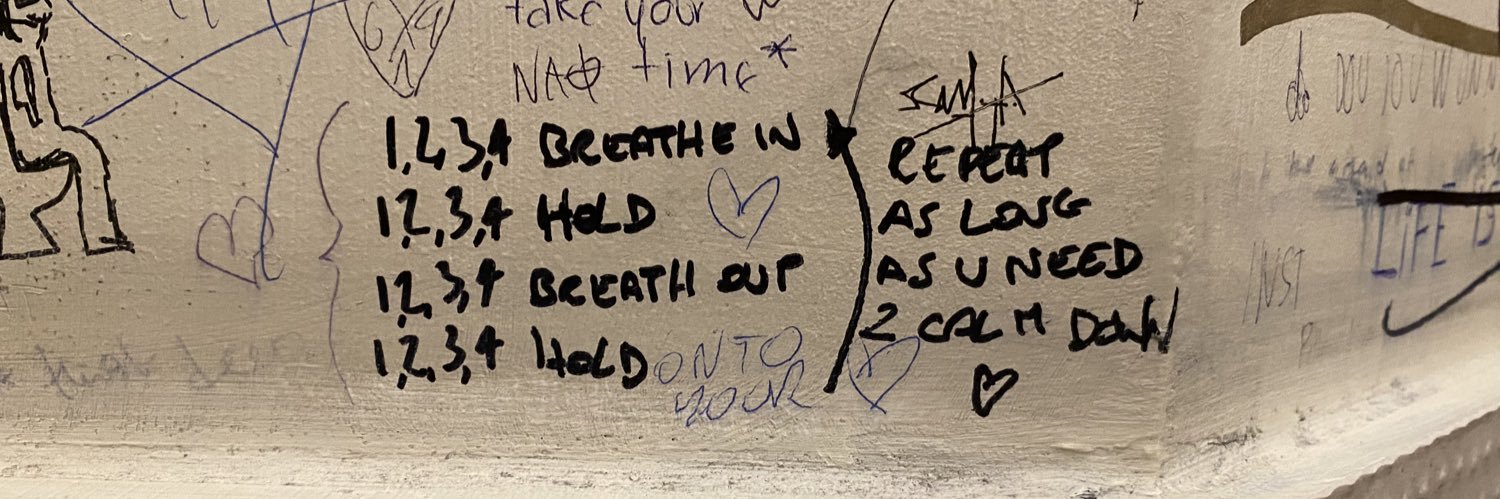 take your
time*
1,2,3,4 BREATHE IN
1,2,3,4 HOLD
1,2,3,4 BREATH OUT
1,2,3,4 HOLD
ONTO
YOUR
REPEAT
AS LONG
AS U NEED
2 CALM DOWN
LIFE IS